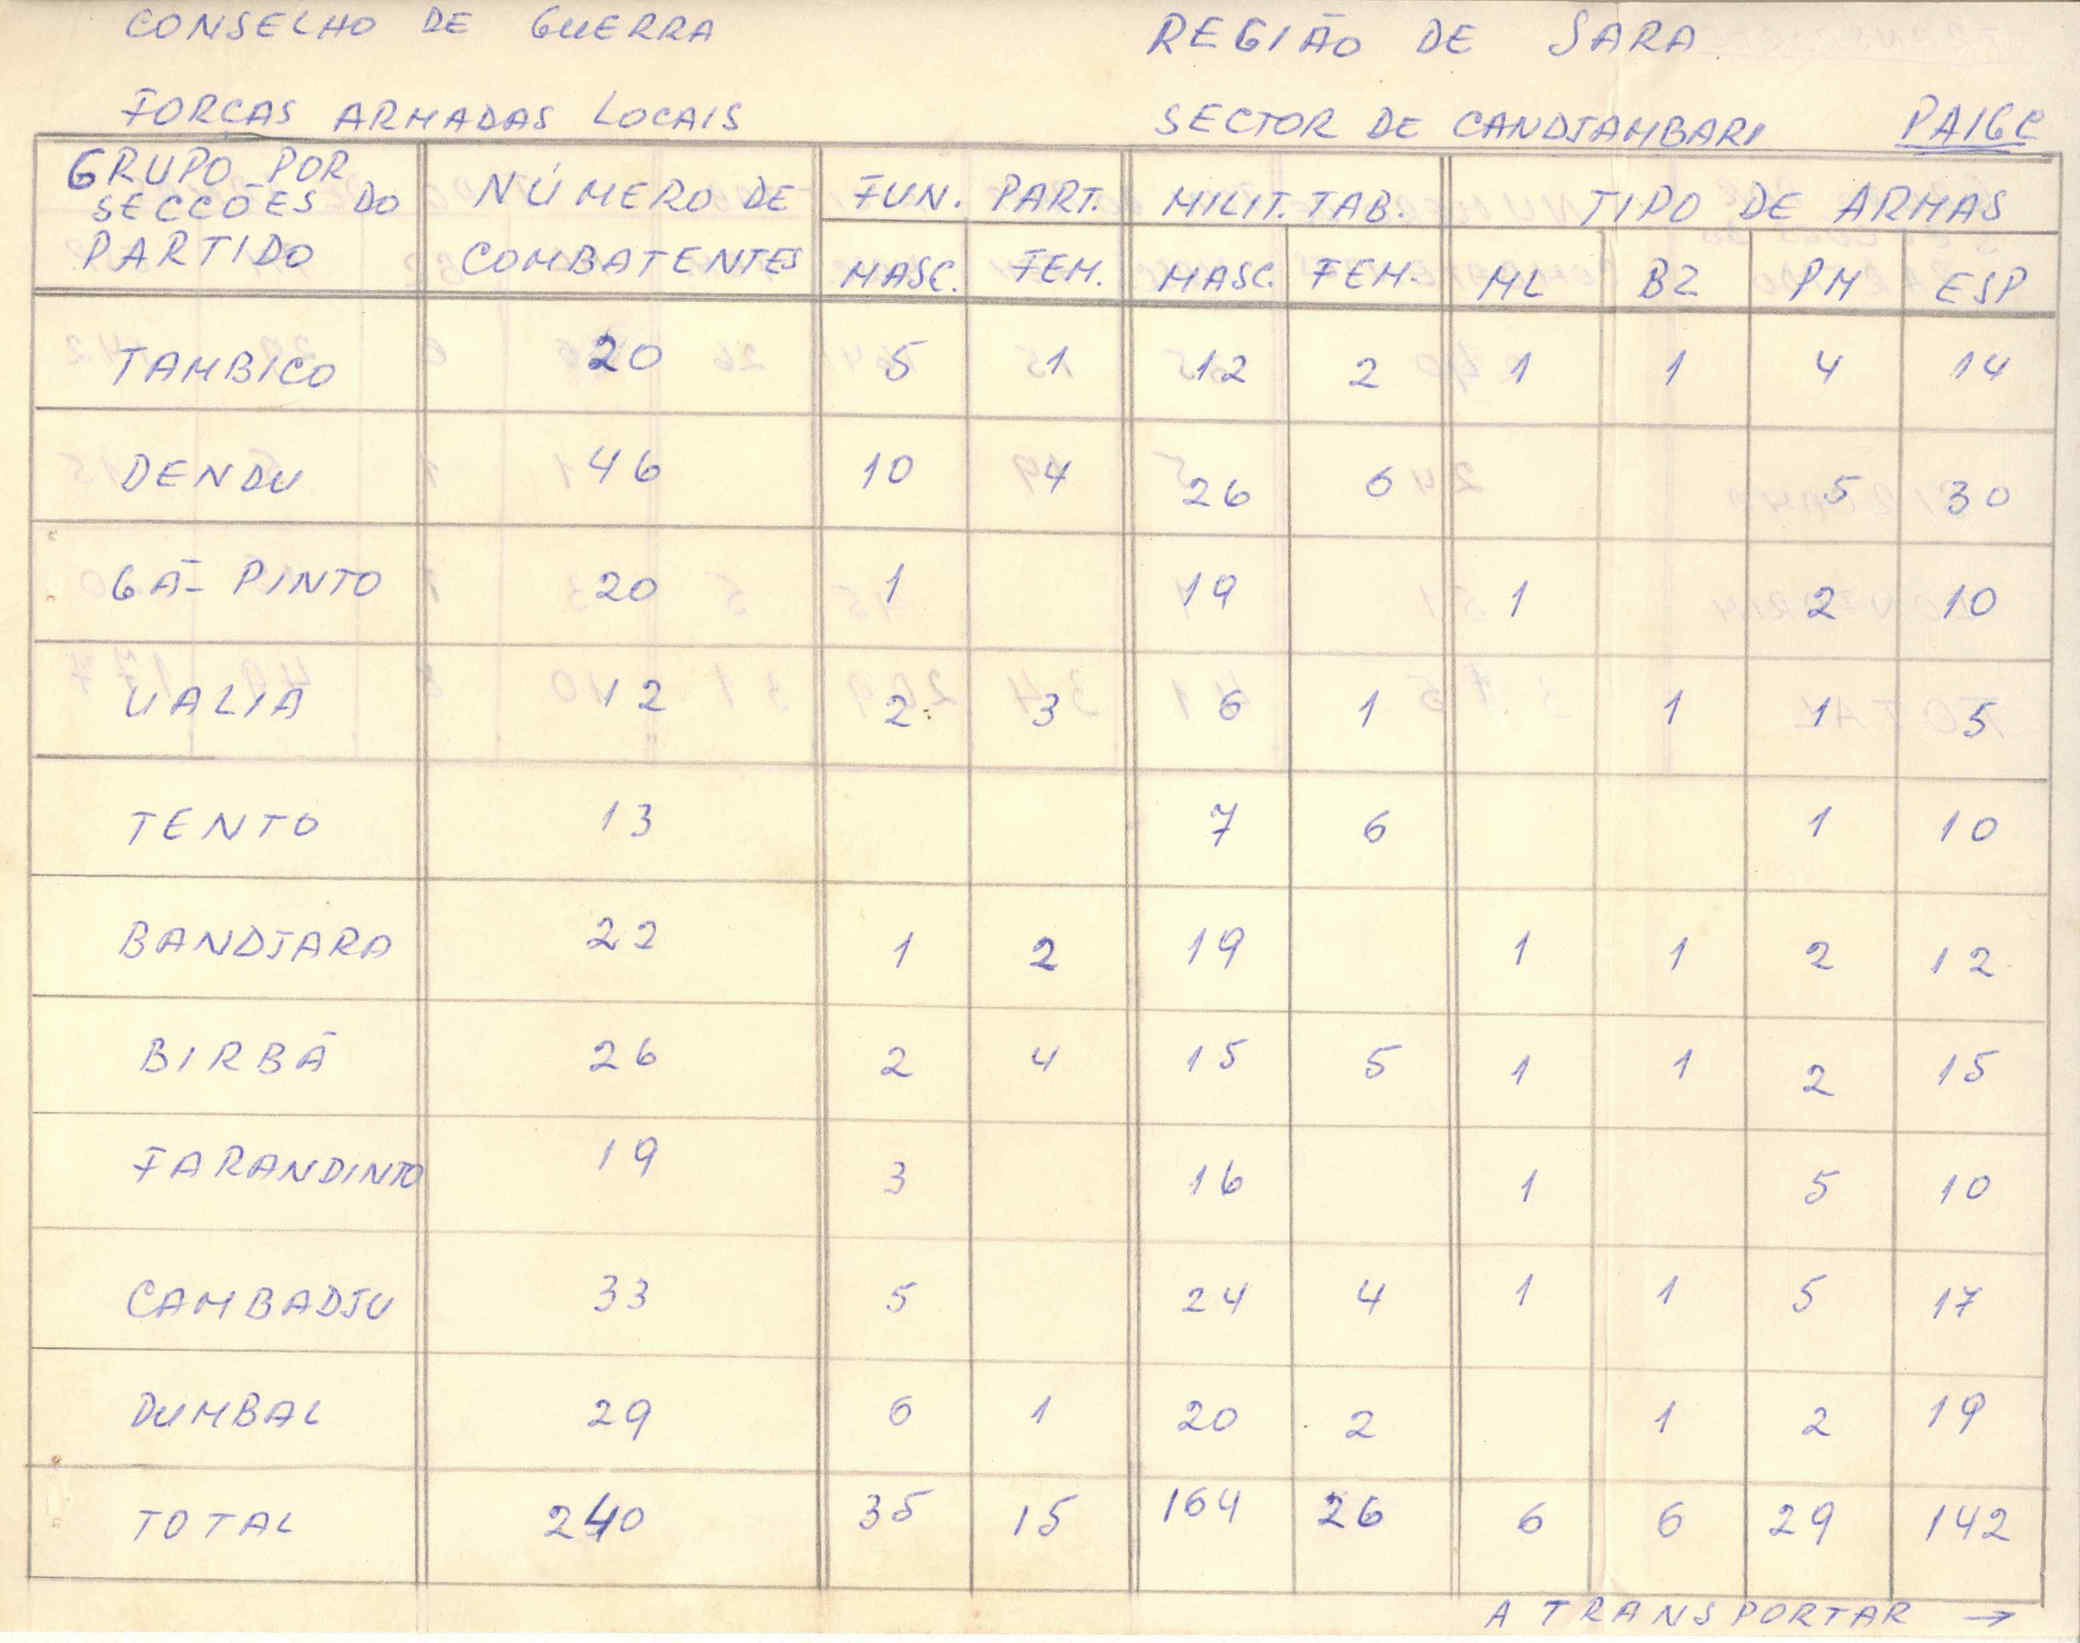 CONSELHO DE GUERRA REGIÃO DE SARA
FORÇAS ARMADAS LOCAIS SECTOR DE CANDJAMBARI PAIGC
GRUPO POR SECCÕES DO PARTIDO NÚMERO DE COMBATENTES FUN. PART. MILIT. TAB. TIPO DE ARMAS
MASC. FEM. MASC. FEM. ML BZ PM ESP
TAMBICO 20 5 1 12 2 1 1 4 14
DENDU 46 10 4 26 6 5 30
GÃ- PINTO 20 1 19 1 2 10
UALIA 12 2 3 6 1 1 1 5
TENTO 13 7 6 1 10
BANDJARA 22 1 2 19 1 1 2 12
BIRBÃ 26 2 4 15 5 1 1 2 15
FARANDINTO 19 3 16 1 5 10
CAMBADJU 33 5 24 4 1 1 5 17
DUMBAL 29 6 1 20 2 1 2 19
TOTAL 240 35 15 164 26 6 6 29 142
A TRANSPORTAR →